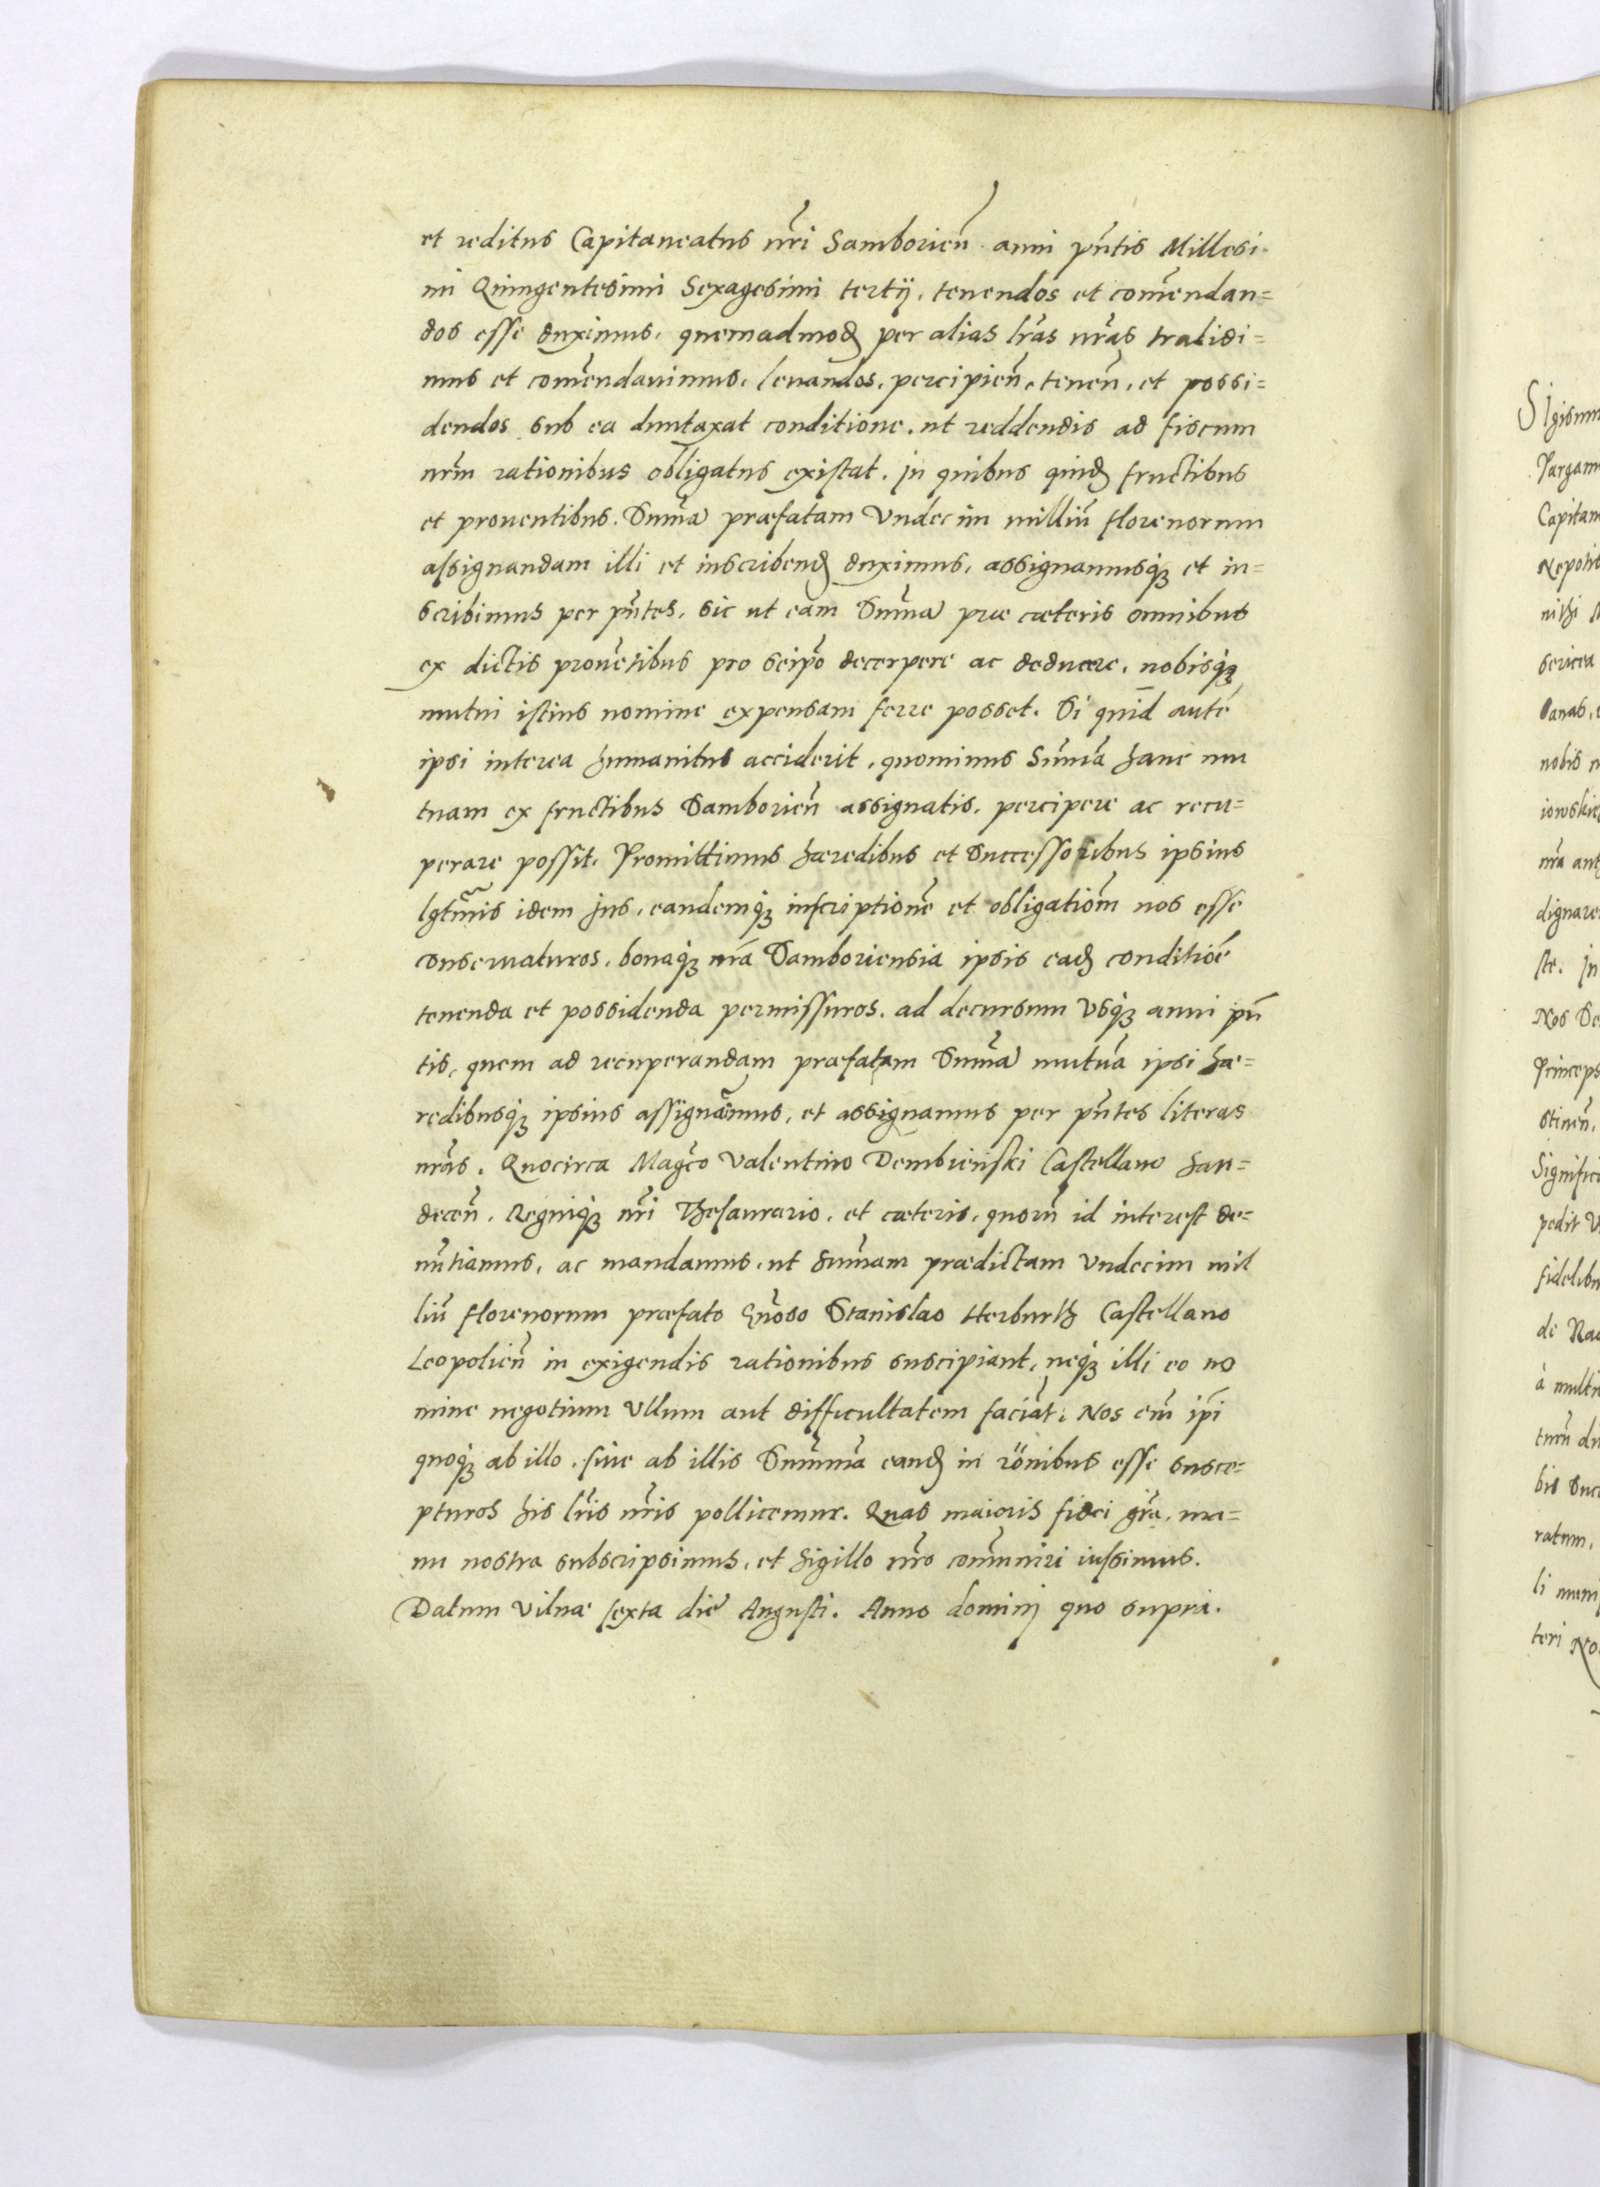 et reditus Capitaneatus nr̃i Samborien̄ anni pn̄tis Millesi-
mi Quingentesimi Sexagesimi tertij, tenendos et com̄endan=
dos esse duximus, quemadmod₃ per alias lr̃as nr̃as tradidi=
mus et com̄endauimus, leuandos, percipien̄, tenen̄, et possi=
dendos sub ea duntaxat conditione, ut reddendis ad fiscum
nr̃m rationibus obligatus existat. In quibus quid₃ fructibus
et prouentibus. Sum̄a praefatam Vndecim milliū florenorum
assignandam illi et inscribend₃ duximus, assignamusq₃ et in=
scribimus per pn̄tes, sic ut eam Sum̄a prae caeteris omnibus
ex dictis prouētibus pro seip̄o decerpere ac deducere, nobisq₃
mutui istius nomine expensam ferre posset. Si quid autē
ipsi interea humanitus acciderit, quominus Sum̄ā hanc mu
tuam ex fructibus Samborien̄ assignatis, percipere ac recu=
perare possit. Promittimus haeredibus et Successoribus ipsius
lgtm̄is idem Jus, eandemq₃ inscriptionē et obligatiōm nos esse
conseruaturos, bonaq₃ nr̃a Samboriensia ipsis ead₃ conditiōe
tenenda et possidenda permissuros, ad decursum Vsq₃ anni pn̄
tis, quem ad recuperandam praefatam Sum̄a mutuā ipsi hae=
redibusq₃ ipsius assignāmus, et assignamus per pn̄tes literas
nr̃as. Quocirca Mag̃co Valentino Dembieński Castellano San=
decen̄. Regniq₃ nr̃i Thesaurario, et caeteris, quorū id interest de=
nūtiamus, ac mandamus, ut sum̄am praedictam Vndecim mil
liū florenorum praefato Gn̄oso Stanislao Herburth Castellano
Leopolien̄ in exigendis rationibus suscipiant, neq₃ illi eo no
mine negotium Vllum aut difficultatem faciāt. Nos em̄ ip̄i
quoq₃ ab illo, siue ab illis Summā eand₃ in rōnibus esse susce=
pturos his lr̃is nr̃is pollicemur. Quas maioris fidei gr̃a, ma=
nu nostra subscripsimus, et Sigillo nr̃o com̄uniri iussimus.
Datum Vilnae sexta die Augusti. Anno dominj quo supra.
Sigismu
Capitan
sericea
nobis
dignare
ste. In
Nos
Princeps
stinen̄,
Signific
fidelibu
à mult
ratum,
teri No